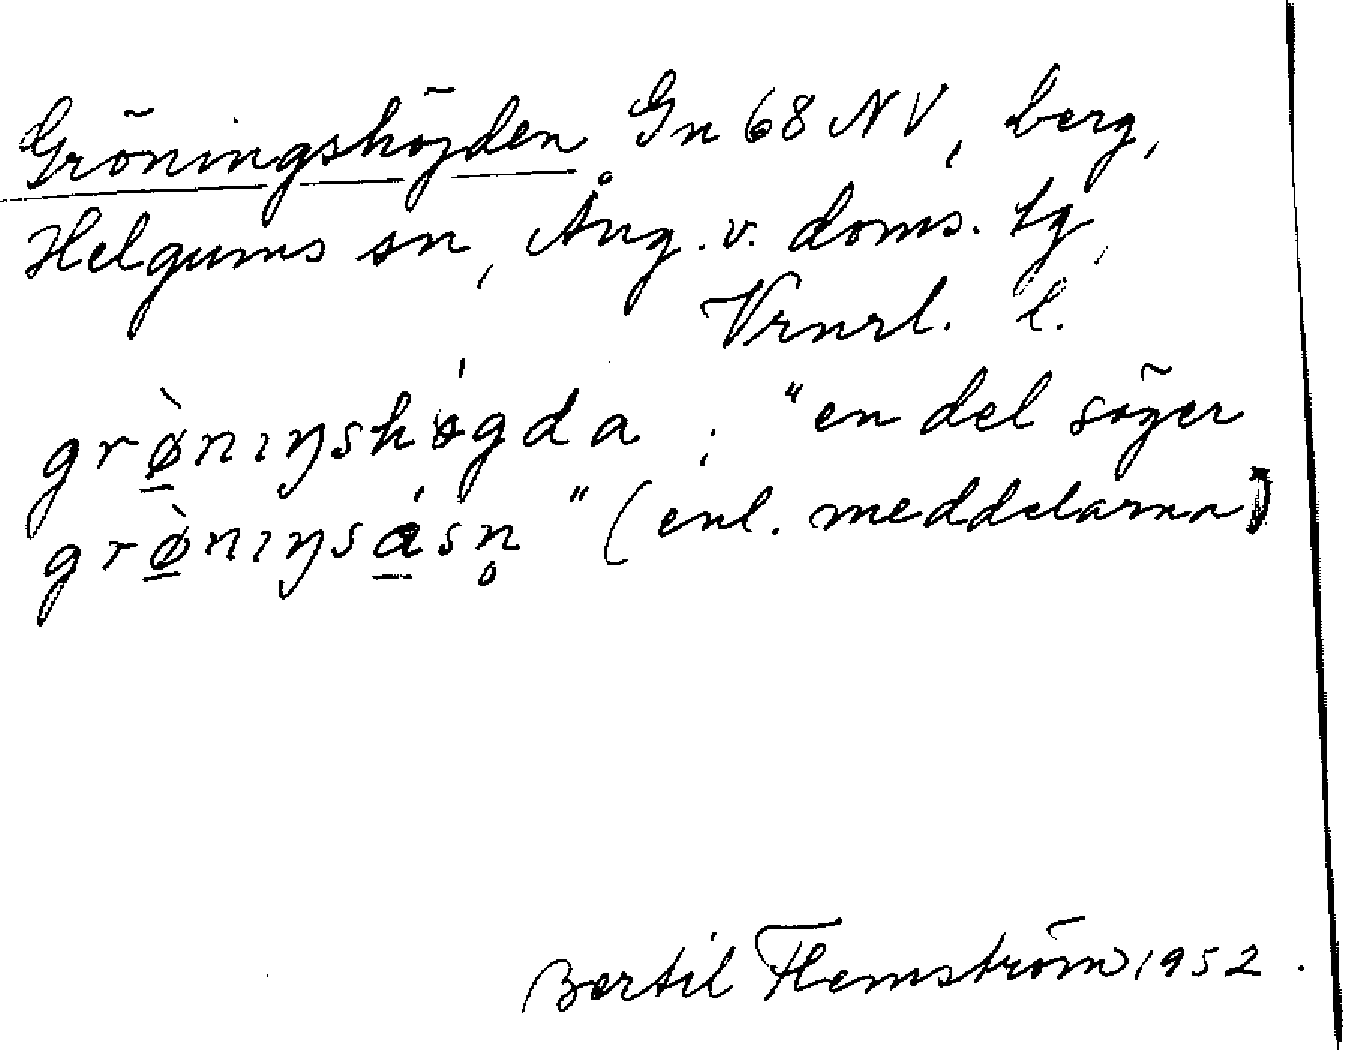 Gröningshöjden Gn 68 NV, berg,
Helgums sn, Ång. v. doms. tg,
Vrnrl. l.
grø̀nıŋshǿgda ; "en del söger
grø̀nıŋsásn̥" (enl. meddelarna)
Bertil Flemström 1952.